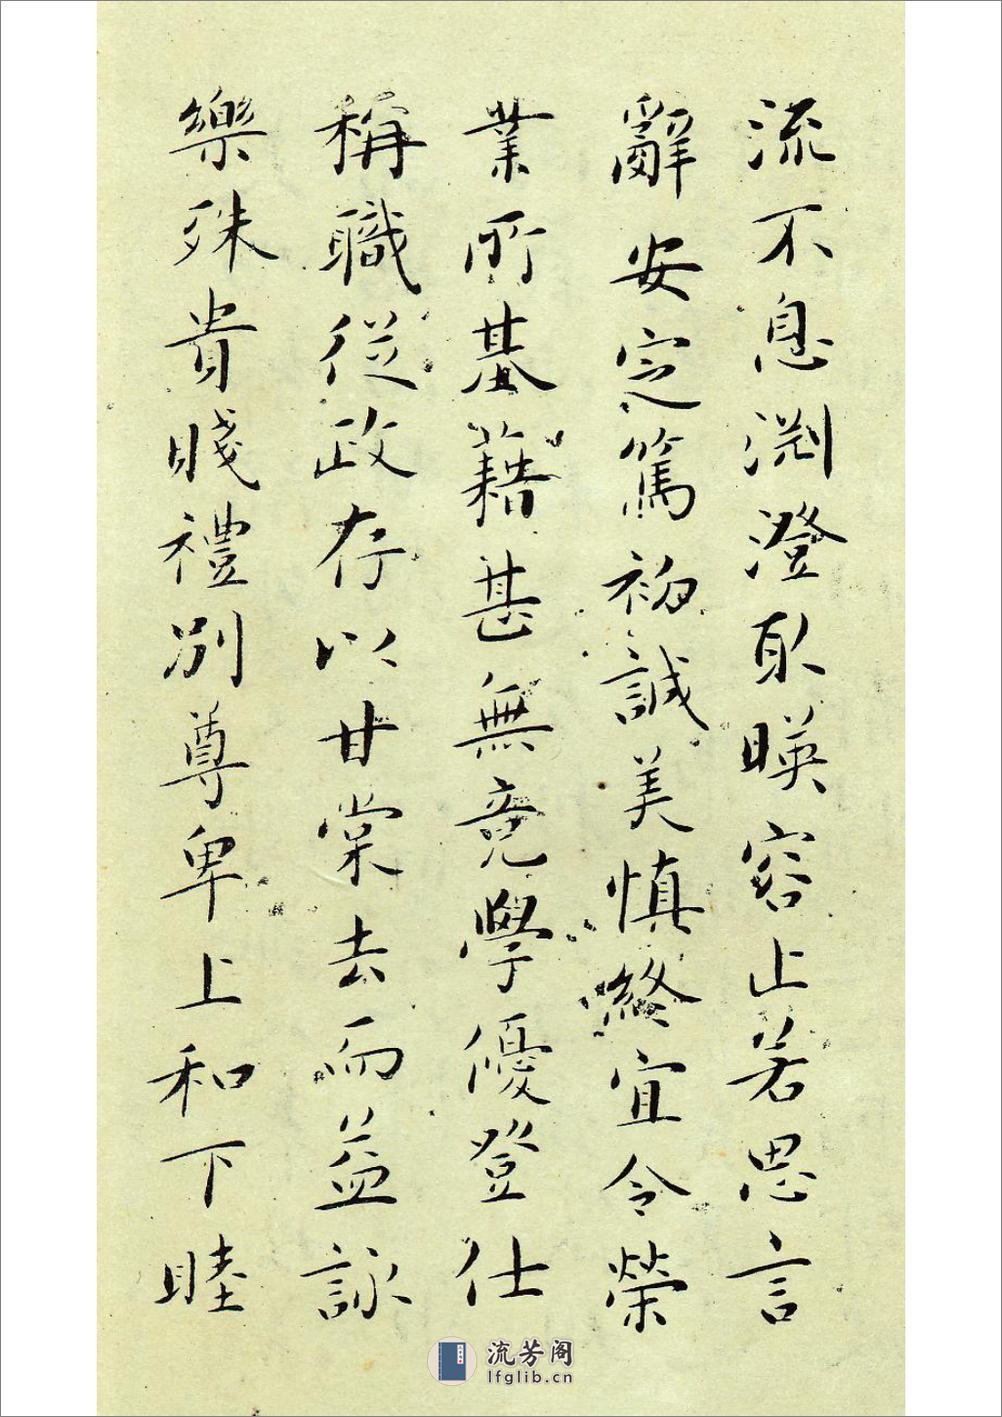 流不息淵澄取暎容止若思言
辭安定篤初誠美慎終宜令榮
業所基藉甚無竟學優登仕
稱職從政存以甘棠去而益詠
樂殊貴賤禮別尊卑上和下睦
流芳阁
lfglib.cn